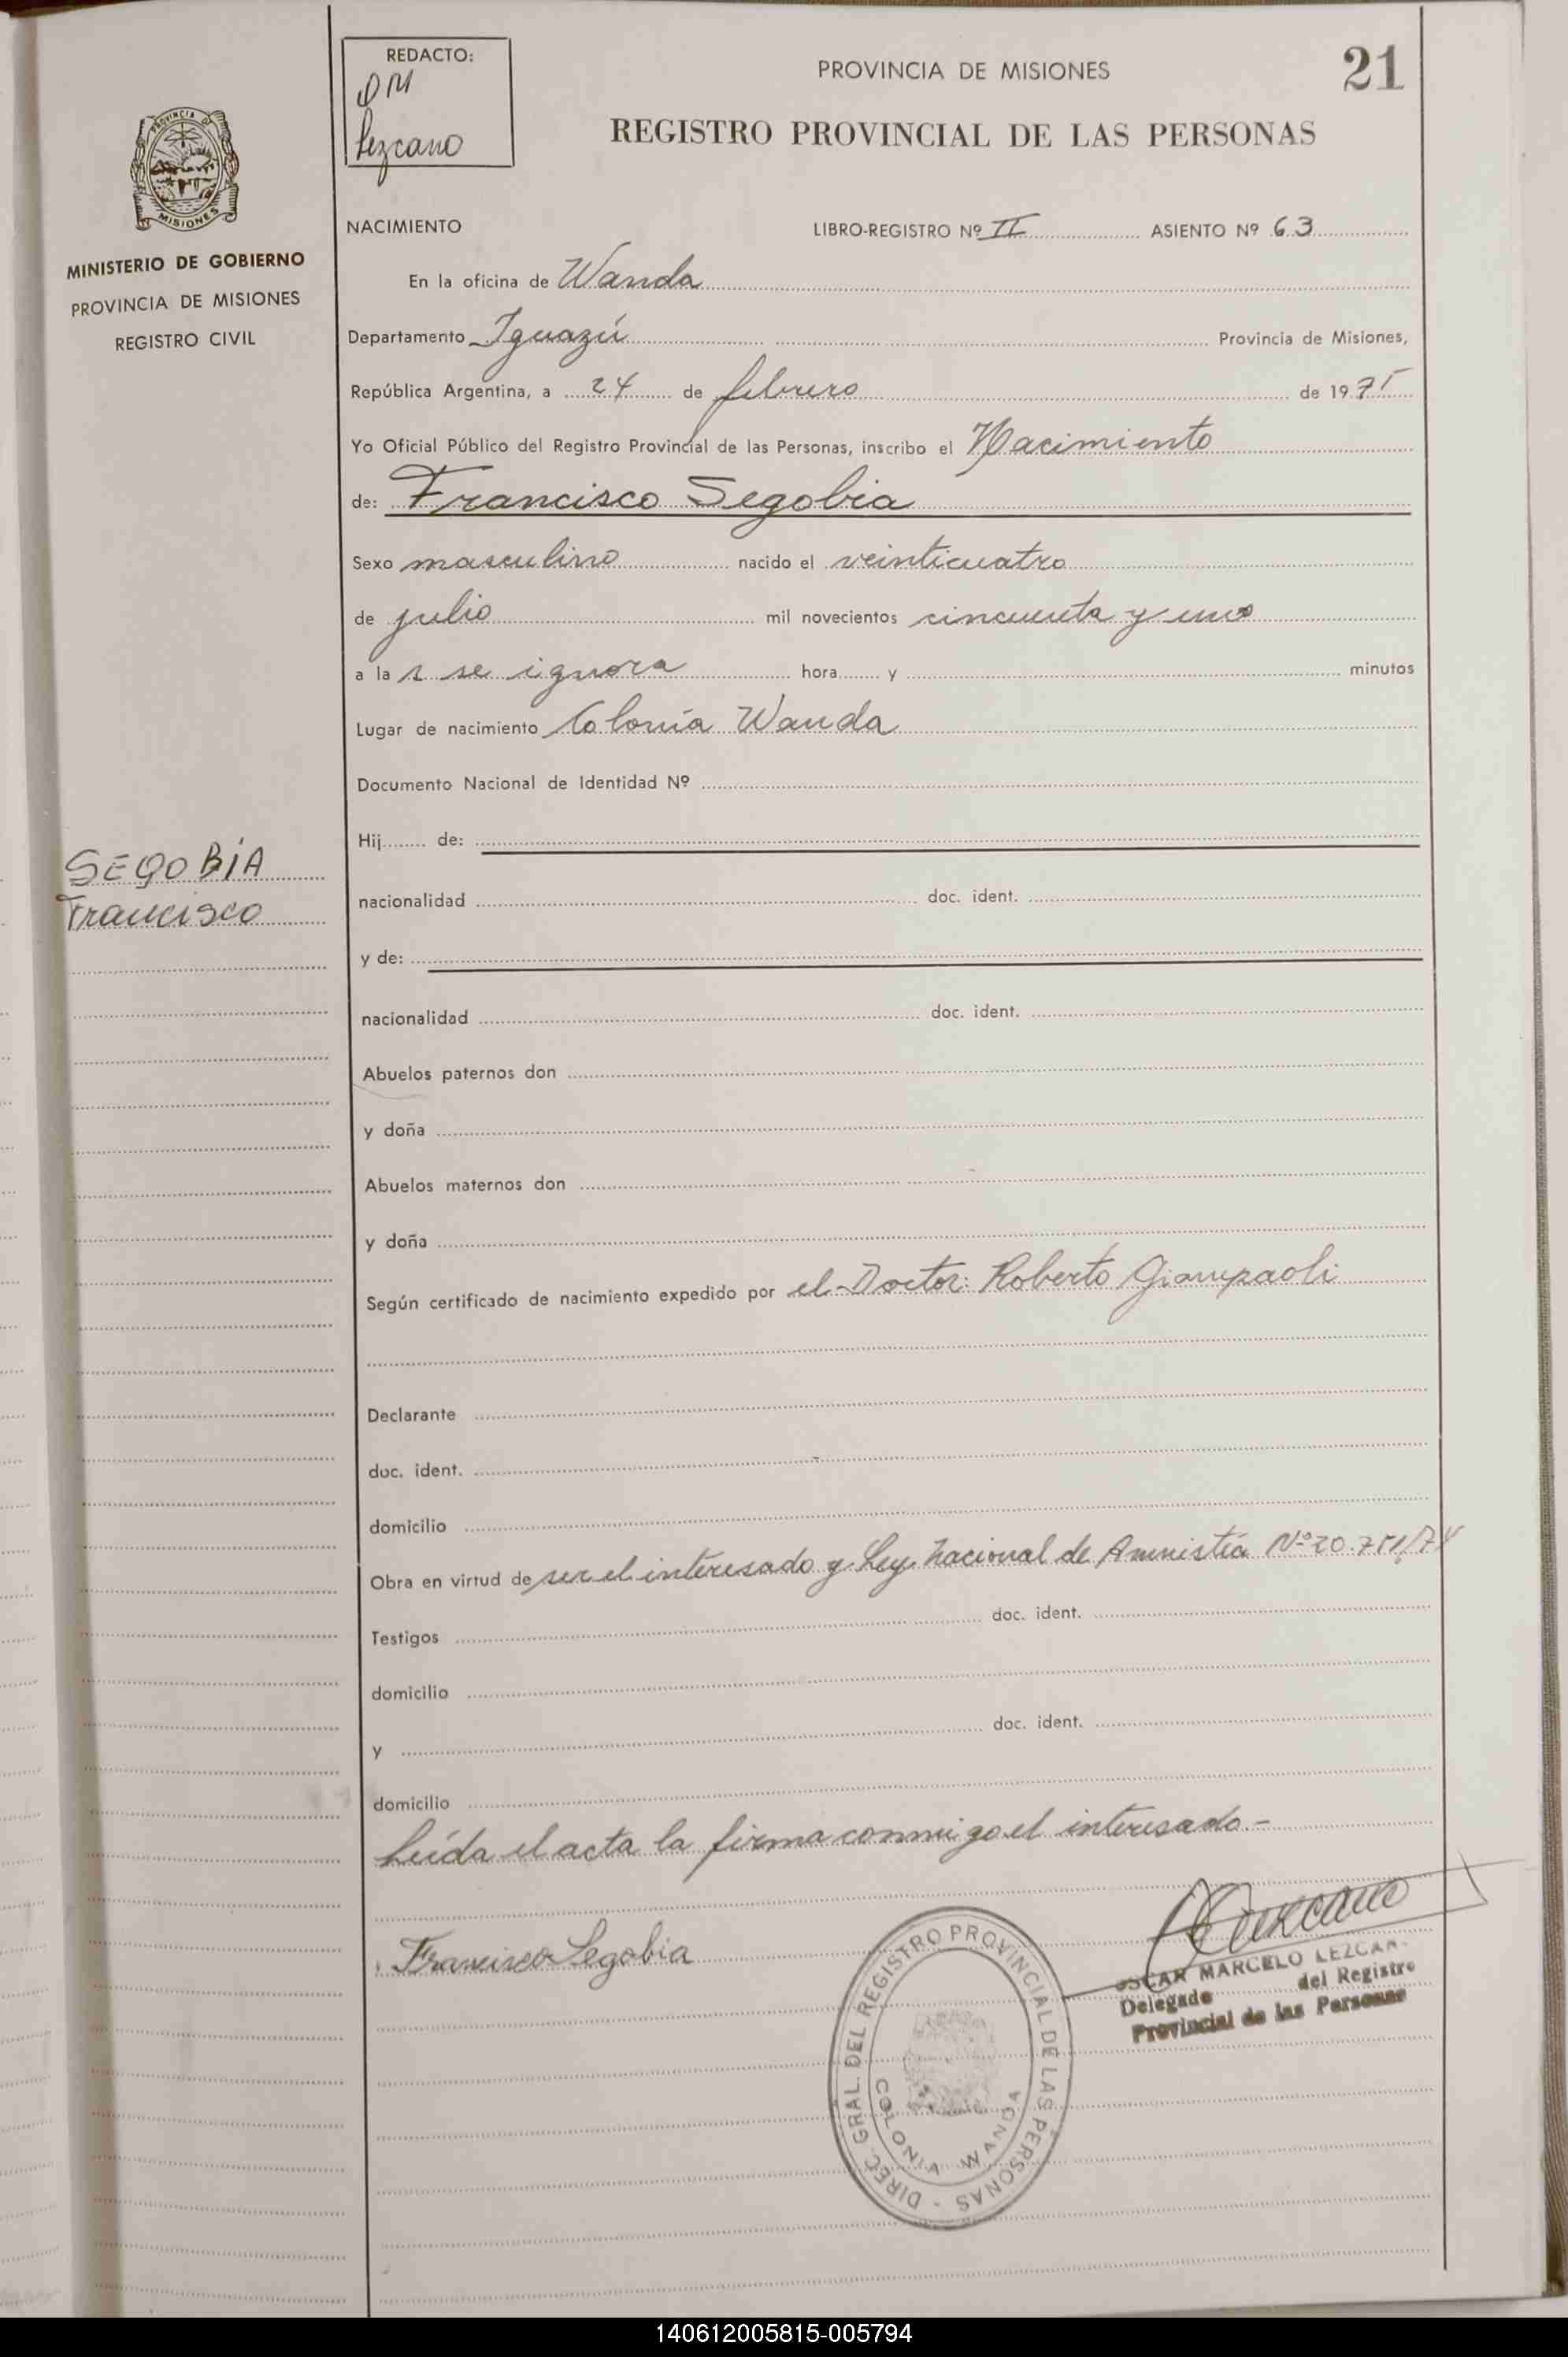 REDACTO:
OM
Lezcano
PROVINCIA DE MISIONES
21
REGISTRO PROVINCIAL DE LAS PERSONAS
PROVINCIA DE
MISIONES
MINISTERIO DE GOBIERNO
PROVINCIA DE MISIONES
REGISTRO CIVIL
NACIMIENTO LIBRO-REGISTRO Nº II ASIENTO Nº 63
En la oficina de Wanda
Departamento Iguazú Provincia de Misiones,
República Argentina, a 24 de febrero de 1975
Yo Oficial Público del Registro Provincial de las Personas, inscribo el Nacimiento
de: Francisco Segobia
Sexo masculino nacido el veinticuatro
de julio mil novecientos cincuenta y uno
a la s se ignora hora y minutos
Lugar de nacimiento Colonia Wanda
Documento Nacional de Identidad Nº
Hij de:
SEGOBIA
Francisco
nacionalidad doc. ident.
y de:
nacionalidad doc. ident.
Abuelos paternos don
y doña
Abuelos maternos don
y doña
Según certificado de nacimiento expedido por el Doctor: Roberto Giampaoli
Declarante
doc. ident.
domicilio
Obra en virtud de ser el interesado y Ley Nacional de Amnistía Nº 20.751/74
Testigos doc. ident.
domicilio
y doc. ident.
domicilio
Leída el acta la firma conmigo el interesado.-
Francisco Segobia
OSCAR MARCELO LEZCAN
Delegado del Registro
Provincial de las Personas
DIREC. GRAL. DEL REGISTRO PROVINCIAL DE LAS PERSONAS -
COLONIA WANDA
140612005815-005794